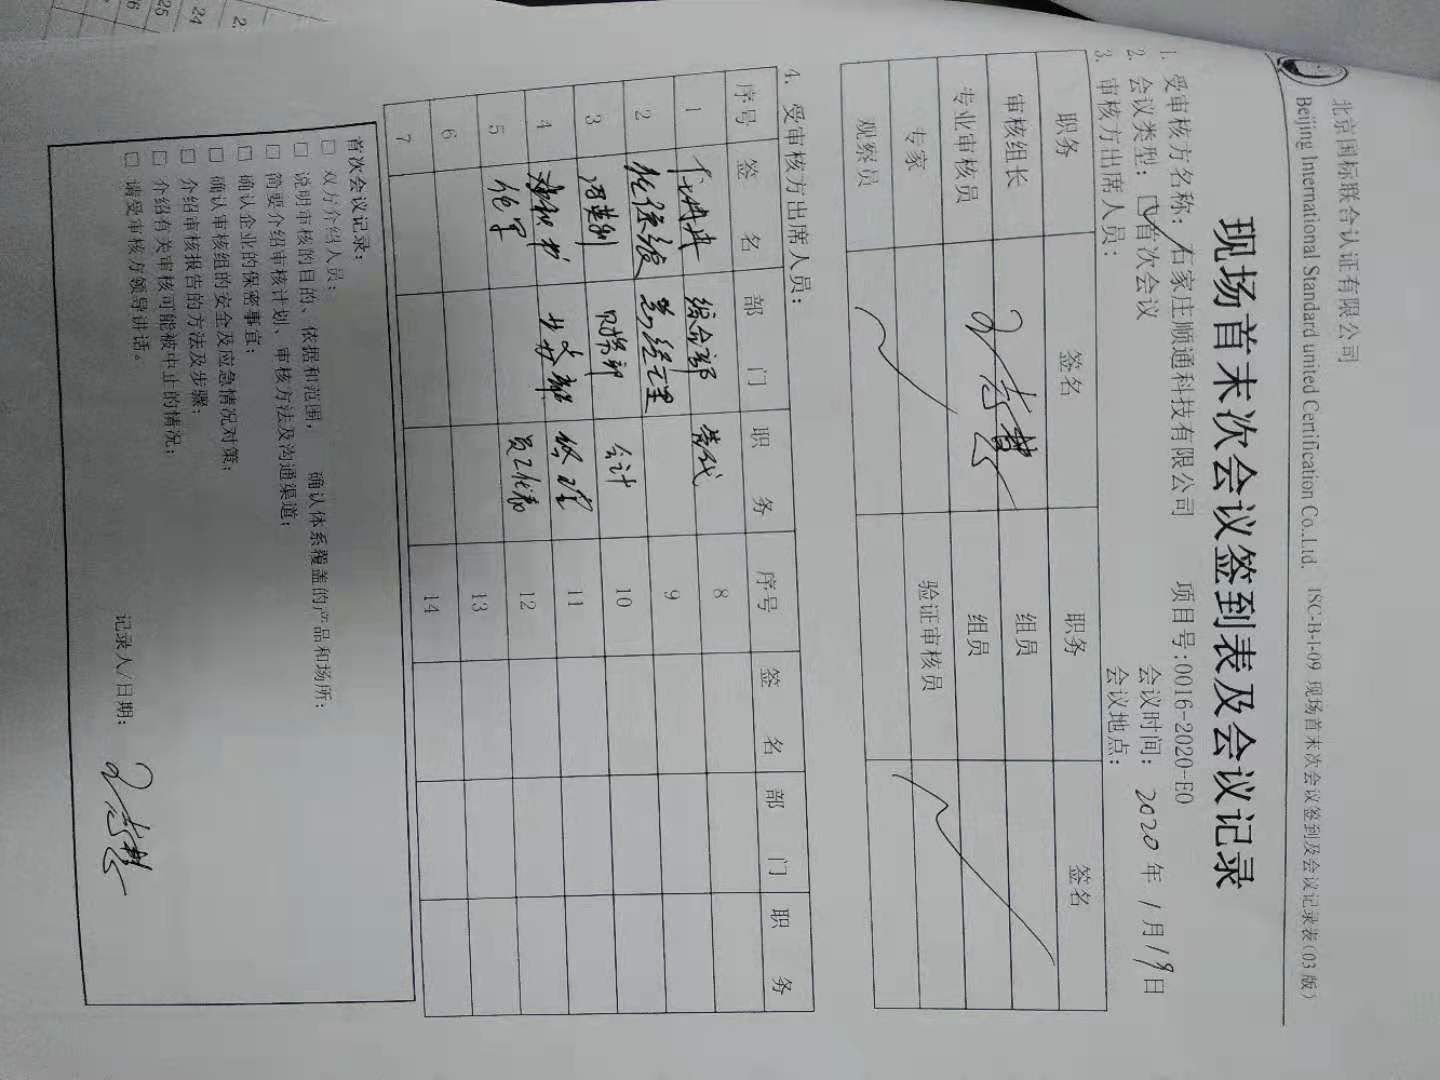 北京国标联合认证有限公司
Beijing International Standard united Certification Co.,Ltd. ISC-B-I-09 现场首末次会议签到及会议记录表(03版)
现场首末次会议签到表及会议记录
1. 受审核方名称：石家庄顺通科技有限公司 项目号:0016-2020-EO
2. 会议类型：☑首次会议 会议时间：2020年1月19日
3. 审核方出席人员： 会议地点：
职务 签名 职务 签名
审核组长 组员
专业审核员 组员
专家 验证审核员
观察员
4. 受审核方出席人员：
序号 签名 部门 职务 序号 签名 部门 职务
1 综合部 管代 8
2 总经理 9
3 财务部 会计 10
4 业务部 经理 11
5 员工代表 12
6 13
7 14
首次会议记录：
□ 双方介绍人员；
□ 说明审核的目的、依据和范围， 确认体系覆盖的产品和场所；
□ 简要介绍审核计划、审核方法及沟通渠道；
□ 确认企业的保密事宜；
□ 确认审核组的安全及应急情况对策；
□ 介绍审核报告的方法及步骤；
□ 介绍有关审核可能被中止的情况；
□ 请受审核方领导讲话。
记录人/日期：
24
25
2.